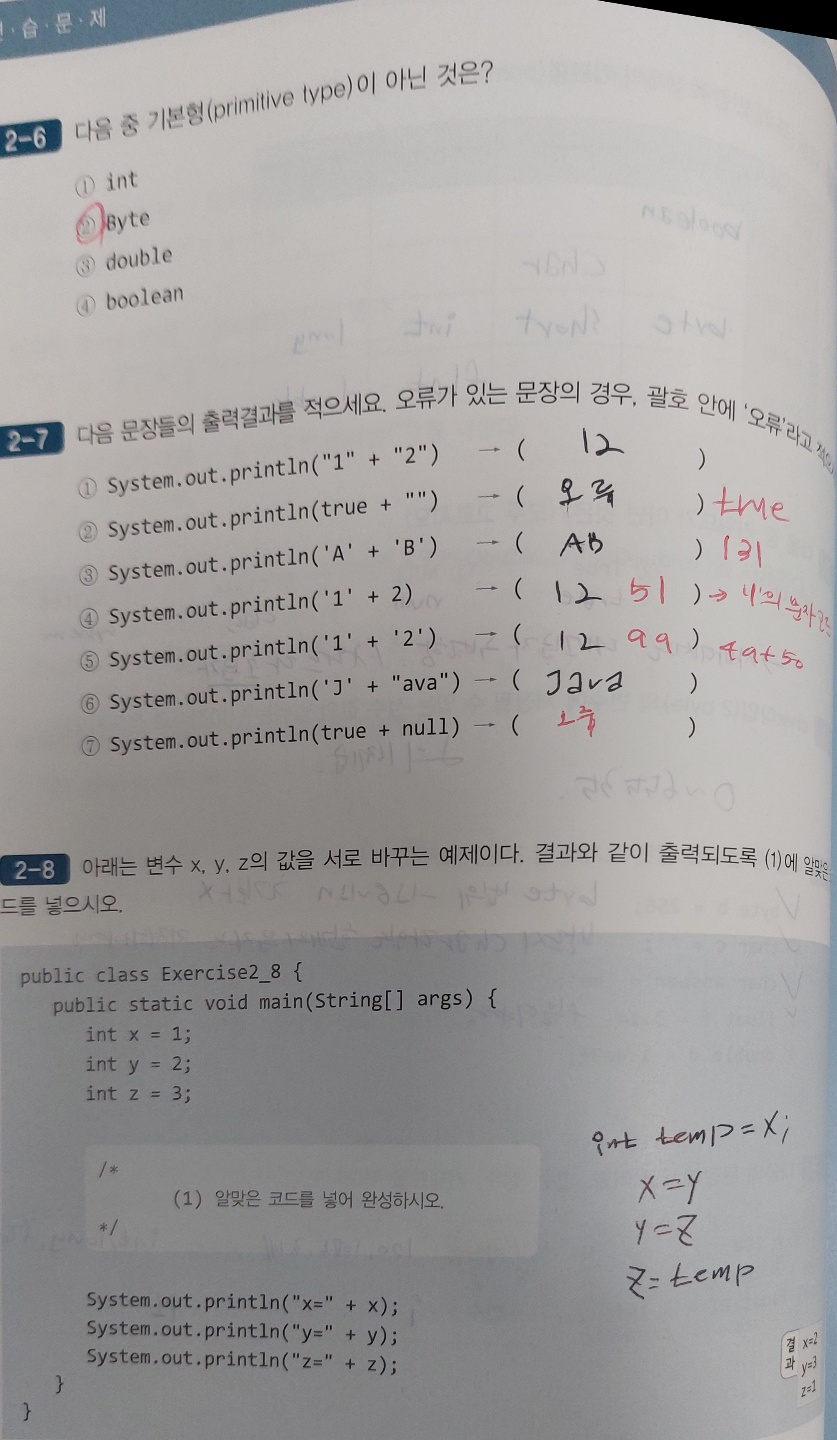 습·문·제
2-6 다음 중 기본형(primitive type)이 아닌 것은?
① int
② Byte
③ double
④ boolean
2-7 다음 문장들의 출력결과를 적으세요. 오류가 있는 문장의 경우, 괄호 안에 '오류'라고
① System.out.println("1" + "2") → ( 12 )
② System.out.println(true + "") → ( 오류 ) true
③ System.out.println('A' + 'B') → ( AB ) 131
④ System.out.println('1' + 2) → ( 12 51 ) →
⑤ System.out.println('1' + '2') → ( 12 99 ) 49+50
⑥ System.out.println('J' + "ava") → ( Java )
⑦ System.out.println(true + null) → ( 오류 )
2-8 아래는 변수 x, y, z의 값을 서로 바꾸는 예제이다. 결과와 같이 출력되도록 (1)에 알맞은
드를 넣으시오.
public class Exercise2_8 {
public static void main(String[] args) {
int x = 1;
int y = 2;
int z = 3;
/*
(1) 알맞은 코드를 넣어 완성하시오.
*/
int temp = x;
x = y
y = z
z = temp
System.out.println("x=" + x);
System.out.println("y=" + y);
System.out.println("z=" + z);
}
}
결과
x=2
y=3
z=1